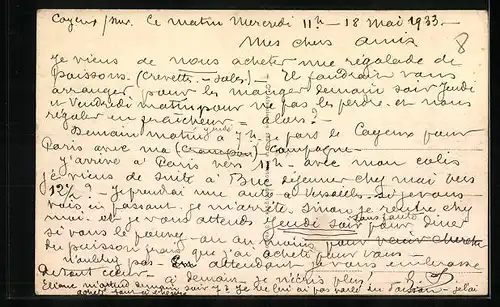 Cayeux s/mer. Ce matin Mercredi 11h - 18 Mai 1933. -
Mes chers amis
8
Je viens de nous acheter une régalade de
poissons. (Crevettes. - Soles.) - Il faudrait vous
arranger pour les manger demain soir Jeudi
et Vendredi matin pour ne pas les perdre. et nous
régaler en fraîcheur = alors? -
Demain matin jeudi à 7h. je pars de Cayeux pour
Paris avec ma compagne. -
J'arrive à Paris vers 11h - avec mon colis
je viens de suite à Buc déjeuner chez moi vers
12h ½? - Je prendrai une auto à Versailles. si je vous
vois en passant. je m'arrête. Sinon je rentre chez
moi. et je vous attends Jeudi soir sans faute pour dîner
si vous le pouvez - ou au moins pour venir chercher
du poisson frais que j'ai acheté pour vous -
n'oubliez pas - En attendant je vous embrasse
de tout cœur - à demain. Je n'écris plus.
soir 7h. Je ne lui ai pas parlé du Poisson - j'ai
acheté